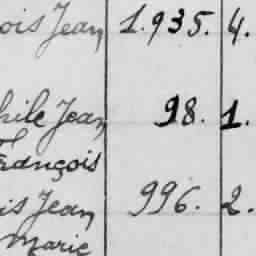 ois Jean 1.935. 4.
hile Jean 98. 1.
François
is Jean 996. 2.
Marie